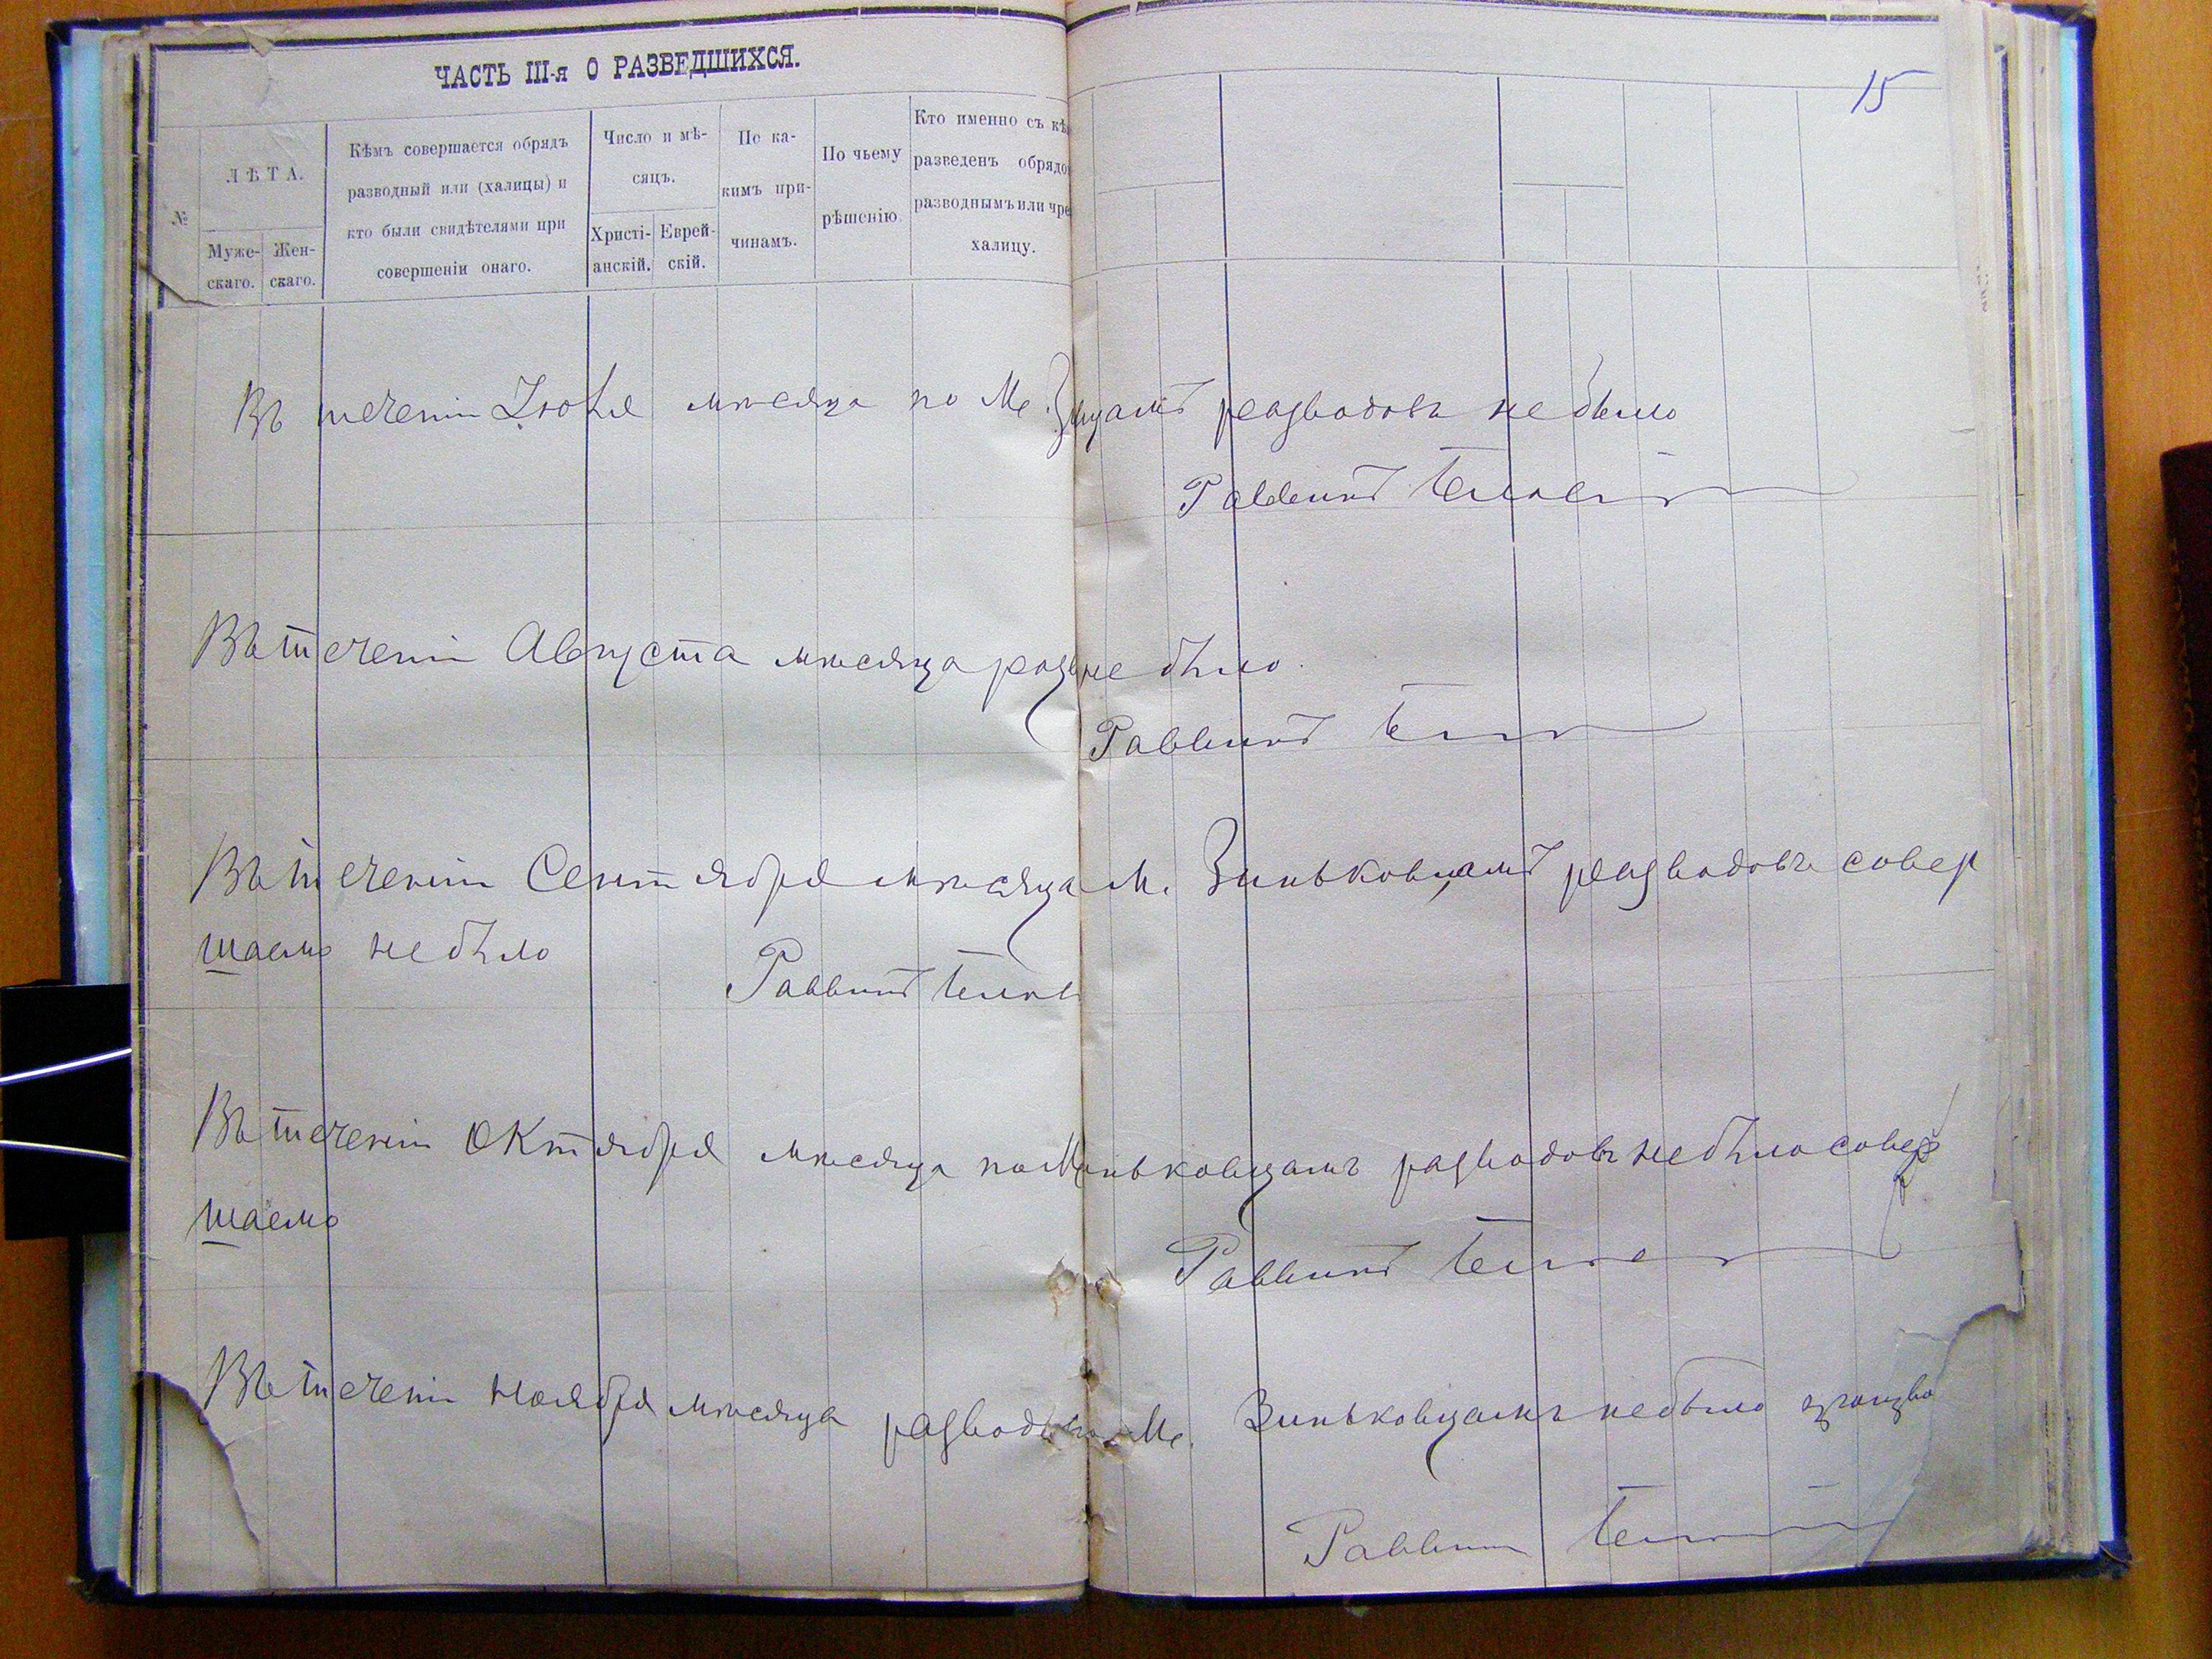 ЧАСТЬ III-я О РАЗВЕДШИХСЯ.
15
№
ЛѢТА.
Муже-
скаго.
Жен-
скаго.
Кѣмъ совершается обрядъ
разводный или (халицы) и
кто были свидѣтелями при
совершеніи онаго.
Число и мѣ-
сяцъ.
Христі-
анскій.
Еврей-
скій.
По ка-
кимъ при-
чинамъ.
По чьему
рѣшенію
Кто именно съ кѣ
разведенъ обрядо
разводнымъ или чре
халицу.
Въ теченіи мѣсяца по М. разводовъ не было
Раввинъ
Въ теченіи Августа мѣсяца не было
Раввинъ
Въ теченіи Сентября мѣсяца М. Зиньковцамъ разводовъ совер
шаемо не было
Раввинъ
Въ теченіи Октября мѣсяца по разводовъ не было совер
шаемо
Раввинъ
Въ теченіи Ноября мѣсяца М. Зиньковцамъ не было
Раввинъ